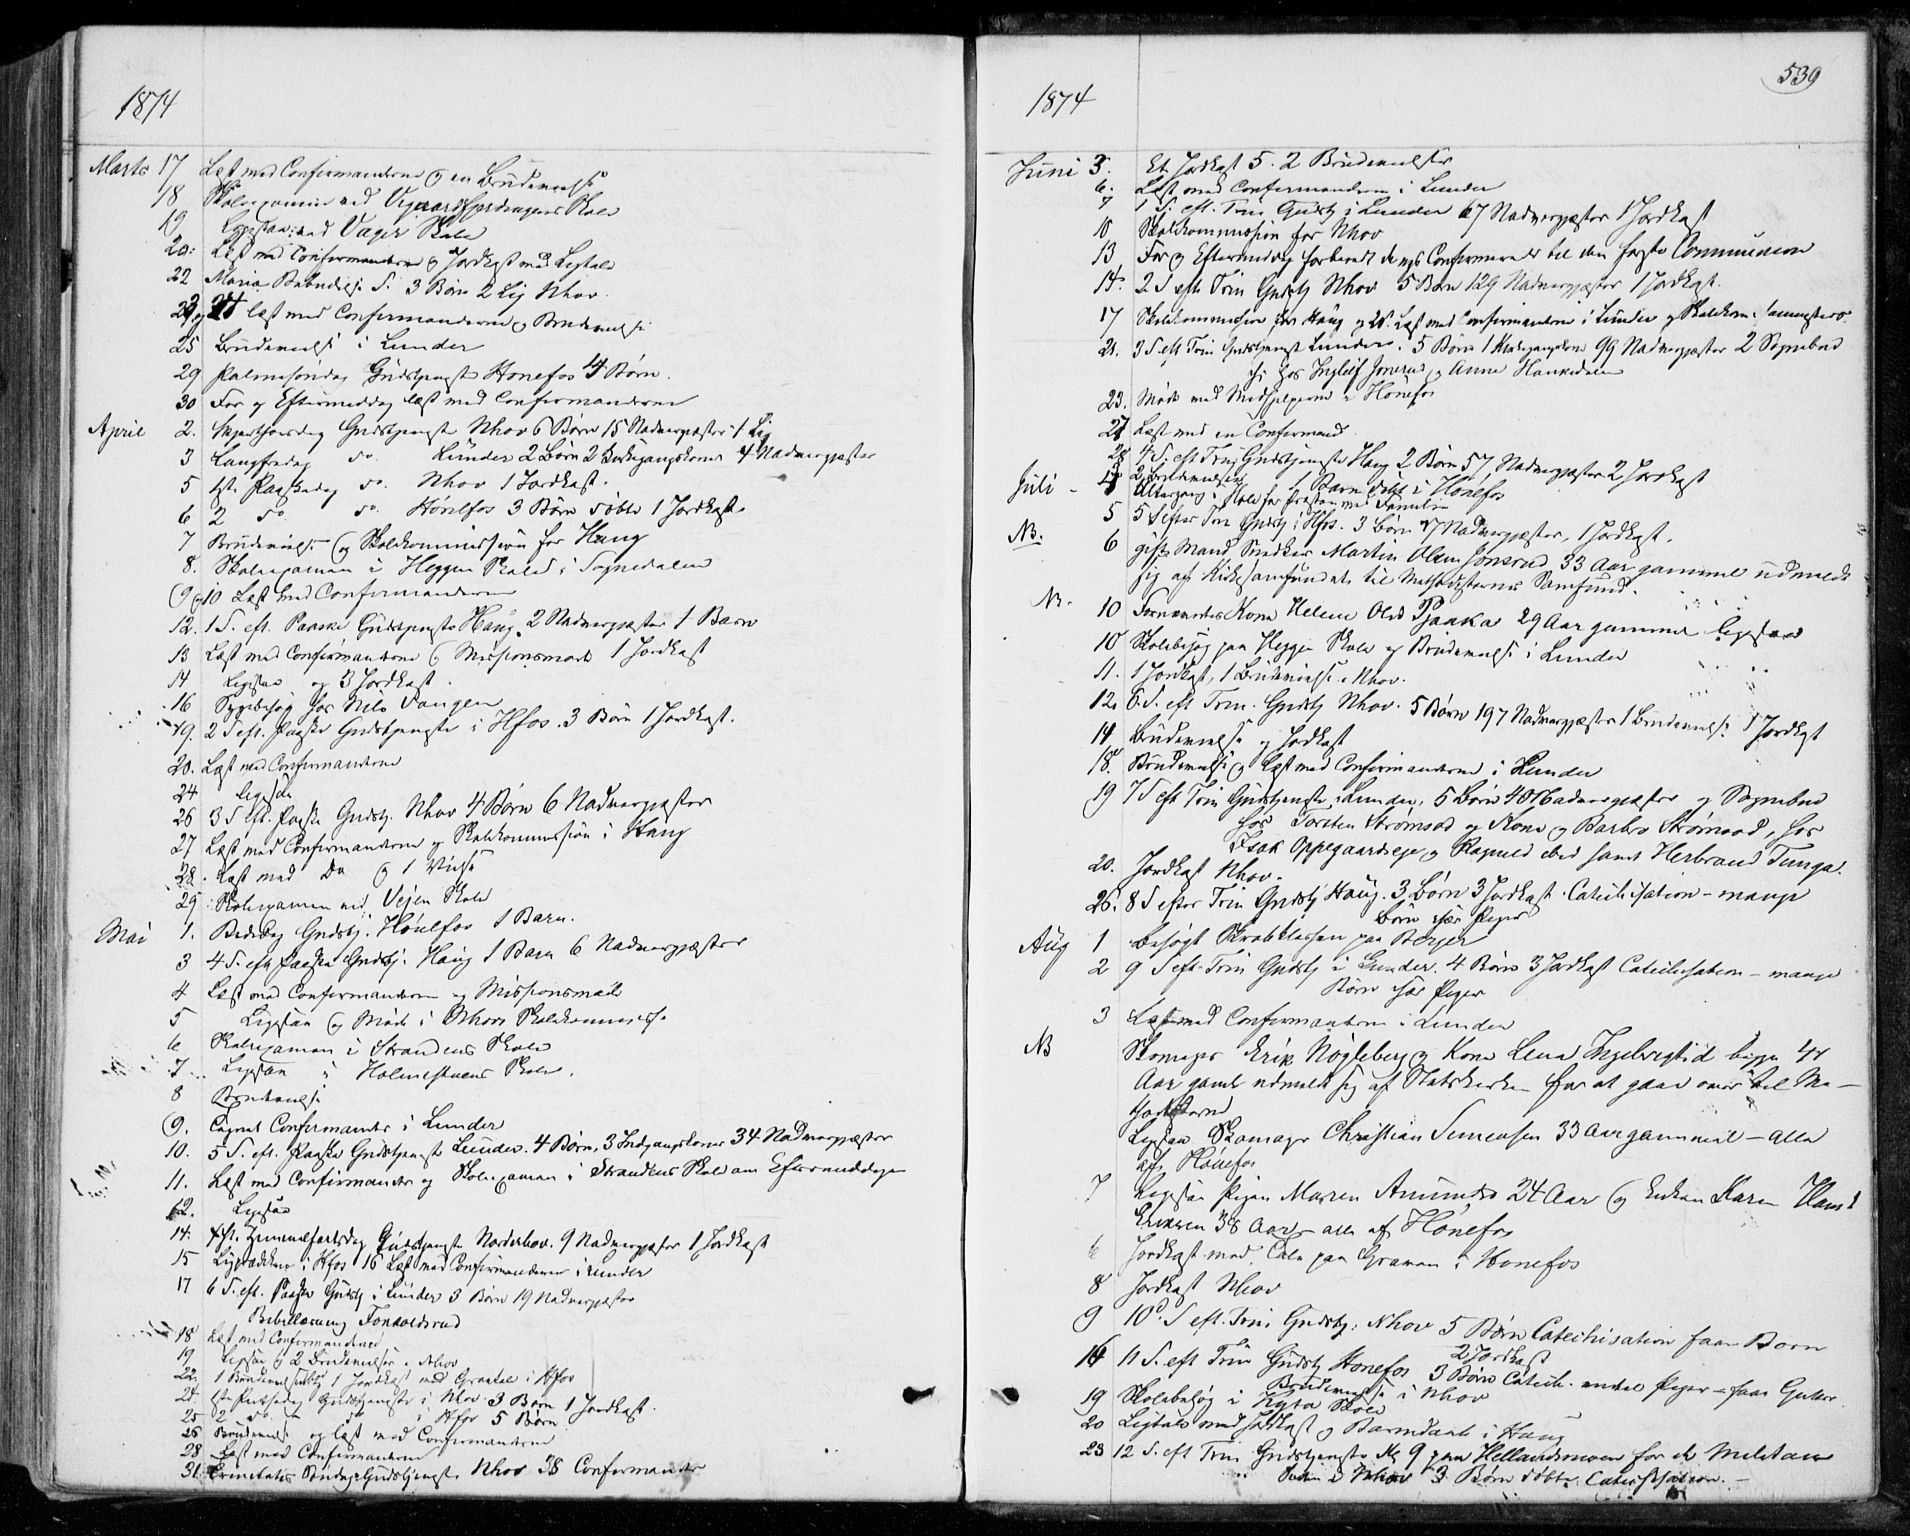 1874
Marts 17 Læst med Confirmanderne og en Brudevielse
18 Skoleexamen ved Skole
19 Ligstaa ved Vager Skole
20. Læst med Confirmanderne og Jordkast med Ligtale
22 Maria Bebudelse S. 3 Børn 2 Lig Nhov.
23 og 24 læst med Confirmanderne og Brudevielse
25 Brudevielse i Lunder
29 Palmesøndag Gudstjeneste Honefos 4 Børn.
30 For og Eftermiddag læst med Confirmanderne
April 2. Skjærthorsdag Gudstjeneste Nhov 6 Børn 15 Nadvergjæster 1 Lig
3 Langfredag do. Lunder 2 Børn 2 Kirkegangskoner 4 Nadvergjæster
5 1ste Paaskedag do. Nhov 1 Jordkast.
6 2 do do. Hönefos 3 Børn döbte 1 Jordkast.
7 Brudevielse og Skolekommission for Haug
8. Skoleexamen i Heggen Skole i Sognedalen
9 og 10 Læst med Confirmanderne
12. 1 S. eft. Paaske Gudstjeneste Haug. 2 Nadvergjæster 1 Barn
13 Læst med Confirmanderne og Missionsmøde 1 Jordkast
14 Ligstaa og 3 Jordkast.
16 Sygebesøg hos Nils Vangen
19. 2 S eft. Paaske Gudstjeneste i Hfos. 3 Børn 1 Jordkast.
20. Læst med Confirmanderne
24 Ligstaa
26 3 S eft. Paaske Gudstj. Nhov 4 Børn 6 Nadvergjæster
27 Læst med Confirmanderne og Skolekommission i Haug
28. Læst med Do og 1 Vielse
29 Skoleexamen ved Vejen Skole
Mai 1. Bededag Gudstj. Hönefos 1 Barn.
3 4 S. eft. Paaske Gudstj. Haug 1 Barn 6 Nadvergjæster
4 Læst med Confirmanderne og Missionsmøde
5 Ligstaa og Møde i Nhovs Skolekommission
6 Skoleexamen i Strandens Skole
7 Ligstaa i Holmestuens Skole.
8 Brudevielse
9. Confirmander i Lunder
10. 5 S. eft. Paaske Gudstjeneste Lunder. 4 Børn, 3 Indgangskoner 34 Nadvergjæster
11. Læst med Confirmander og Skoleexamen i Strandens Skole om Eftermiddagen
12. Ligstaa
14. Kr. Himmelfartsdag Gudstjeneste Norderhov. 9 Nadvergjæster 1 Jordkast
15 i Hfos 16 Læst med Confirmanderne i Lunder
17 6 S. eft. Paaske Gudstj i Lunder 3 Børn 19 Nadvergjæster
Bibellæsning
18 Læst med Confirmanderne
19 Ligstaa og 2 Brudevielser i Nhov
22. 1 Brudevielse og 1 Jordkast med Gravtale i Hfos
24. 1ste Pintsedag Gudstjeneste i Nhov 3 Børn 1 Jordkast.
25 2 do do i Hfos 5 Børn
26 Brudevielse og læst med Confirmanderne
28 Læst med Confirmanderne
31. Trinitatis Søndag Gudstjeneste Nhov 38 Confirmander
539
1874
Juni 3. Et Jordkast 5. 2 Brudevielser
6. Læst med Confirmanderne i Lunder
7 1 S. eft. Trin Gudstj i Lunder 67 Nadvergjæster 1 Jordkast
10 Skolekommission for Nhov
13 For og Eftermiddag forberedt de nys Confirmerede til den første Communion
14. 2 S eft Trin Gudstj Nhov 5 Børn 129 Nadvergjæster 1 Jordkast.
17 Skolekommission for Haug og 20. Læst med Confirmanderne i Lunder og Skolekom.
21. 3 S eft Trin Gudstjeneste Lunder. 5 Børn 1 Kirkegangskone 99 Nadvergjæster 2 Sognebud
hos og Anne
23. Møde med Medhjelperne i Hönefos
27 Læst med en Confirmand.
28 4 S. eft Trin Gudstjeneste Haug 2 Børn 57 Nadvergjæster 2 Jordkast
2 Brudevielser 1 Barn døbt i Hönefos
Juli Altergang i Hole for Præsten med Familie
5 5 S efter Trin Gudstj i Hfos. 3 Børn 47 Nadvergjæster, 1 Jordkast.
NB. 6 gift Mand Snedker Martin Olsen Jonsrud 33 Aar gammel udmeldt
sig af Kirkesamfundet til Methodisternes Samfund.
Nr. 10 Kone Helene Olsd Pjaaka 29 Aar gammel ligesaa
10 Skolebesøg paa Heggen Skole og Brudevielse i Lunder
11. 1 Jordkast, 1 Brudevielse i Nhov.
12. 6. S. eft Trin. Gudstj Nhov. 5 Børn 197 Nadvergjæster 1 Brudevielse 1 Jordkast
14 Brudevielse og Jordkast
18. Brudevielse og læst med Confirmanderne i Lunder
19 7 S eft Trin Gudstjeneste i Lunder, 5 Børn 40 Nadvergjæster og Sognebud
hos Torsten Strømsod og Kone og Barbro Strømsod, hos
Isak Oppegaardseje og Ragnild ibid samt Herbrand Tunga.
20. Jordkast Nhov.
26. 8 S efter Trin Gudstj Haug. 3 Børn 3 Jordkast. Catechisation - mange
Børn især Piger
Aug 1 Besøgt paa Berger
2 9 S eft. Trin Gudstj i Lunder. 4 Børn 3 Jordkast Catechisation - mange
Børn især Piger
3 Læst med Confirmanderne i Lunder
NB Skomager Erik Nögleberg og Kone Lena Ingebrigtsd begge 44
Aar gamle udmeldt sig af Statskirken for at gaae over til Me-
thodisterne
Ligesaa Skomager Christian Simensen 33 Aar gammel - alle
af Hönefos
7 Ligesaa Pigen Maren Amundsd 24 Aar og Enken Karen
Eriksen 38 Aar - alle af Hönefos
6 Jordkast med Tale paa Graven i Honefos
8 Jordkast Nhov
9 10 S eft. Trin Gudstj. Nhov 5 Børn Catechisation faae Børn
2 Jordkast
16 11 S. eft Trin Gudstj Honefos 3 Børn Catech. endel Piger - faae Gutter
Brudevielse i Nhov
19 Skolebesøg i Skole
20 Ligtale med Jordkast og Barnedaab i Haug
23 12 S. eft Trin Gudstjeneste Kl 9 paa Hellandsmoen for de Militære
Siden i Nhov 3 Børn döbte. Catechisation. -